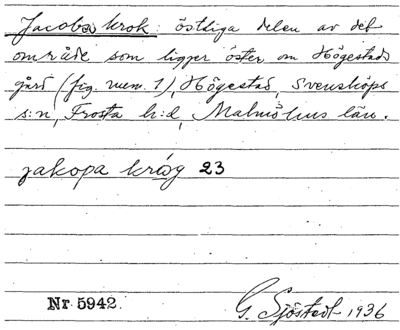 Jacoba krok: östliga delen av det
område som ligger öster om Högestads
gård (fig. num. 1), Högestad, Svensköps
s:n, Frosta h:d, Malmöhus län.
jakopa kråg 23
Nr 5942. G. Sjöstedt 1936